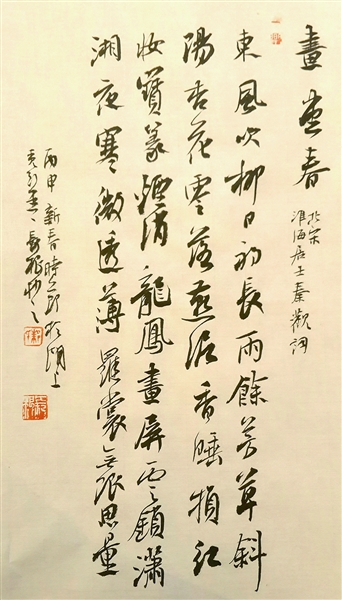 畫堂春
北宋
淮海居士秦觀詞
東風吹柳日初長雨餘芳草斜
陽杏花零落燕泥香睡損紅
妝寶篆煙消龍鳳畫屏雲鎖瀟
湘夜寒微透薄羅裳無限思量
丙申新春時節於上